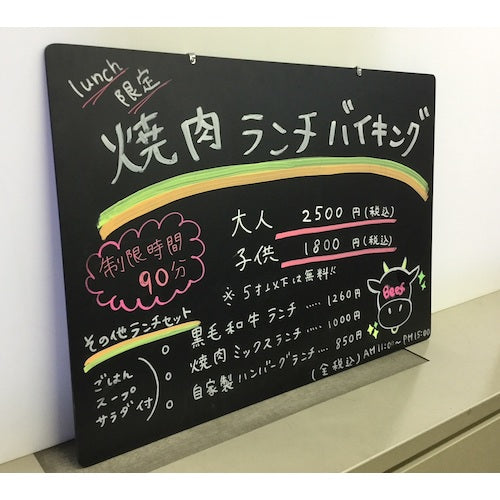 lunch
限定
焼肉ランチバイキング
大人 2500円(税込)
子供 1800円(税込)
※5才以下は無料!!
制限時間
90分
Beef
その他ランチセット
ごはん
スープ
サラダ付
黒毛和牛ランチ……1260円
焼肉ミックスランチ……1000円
自家製ハンバーグランチ…850円
(全税込)
AM11:00~PM15:00